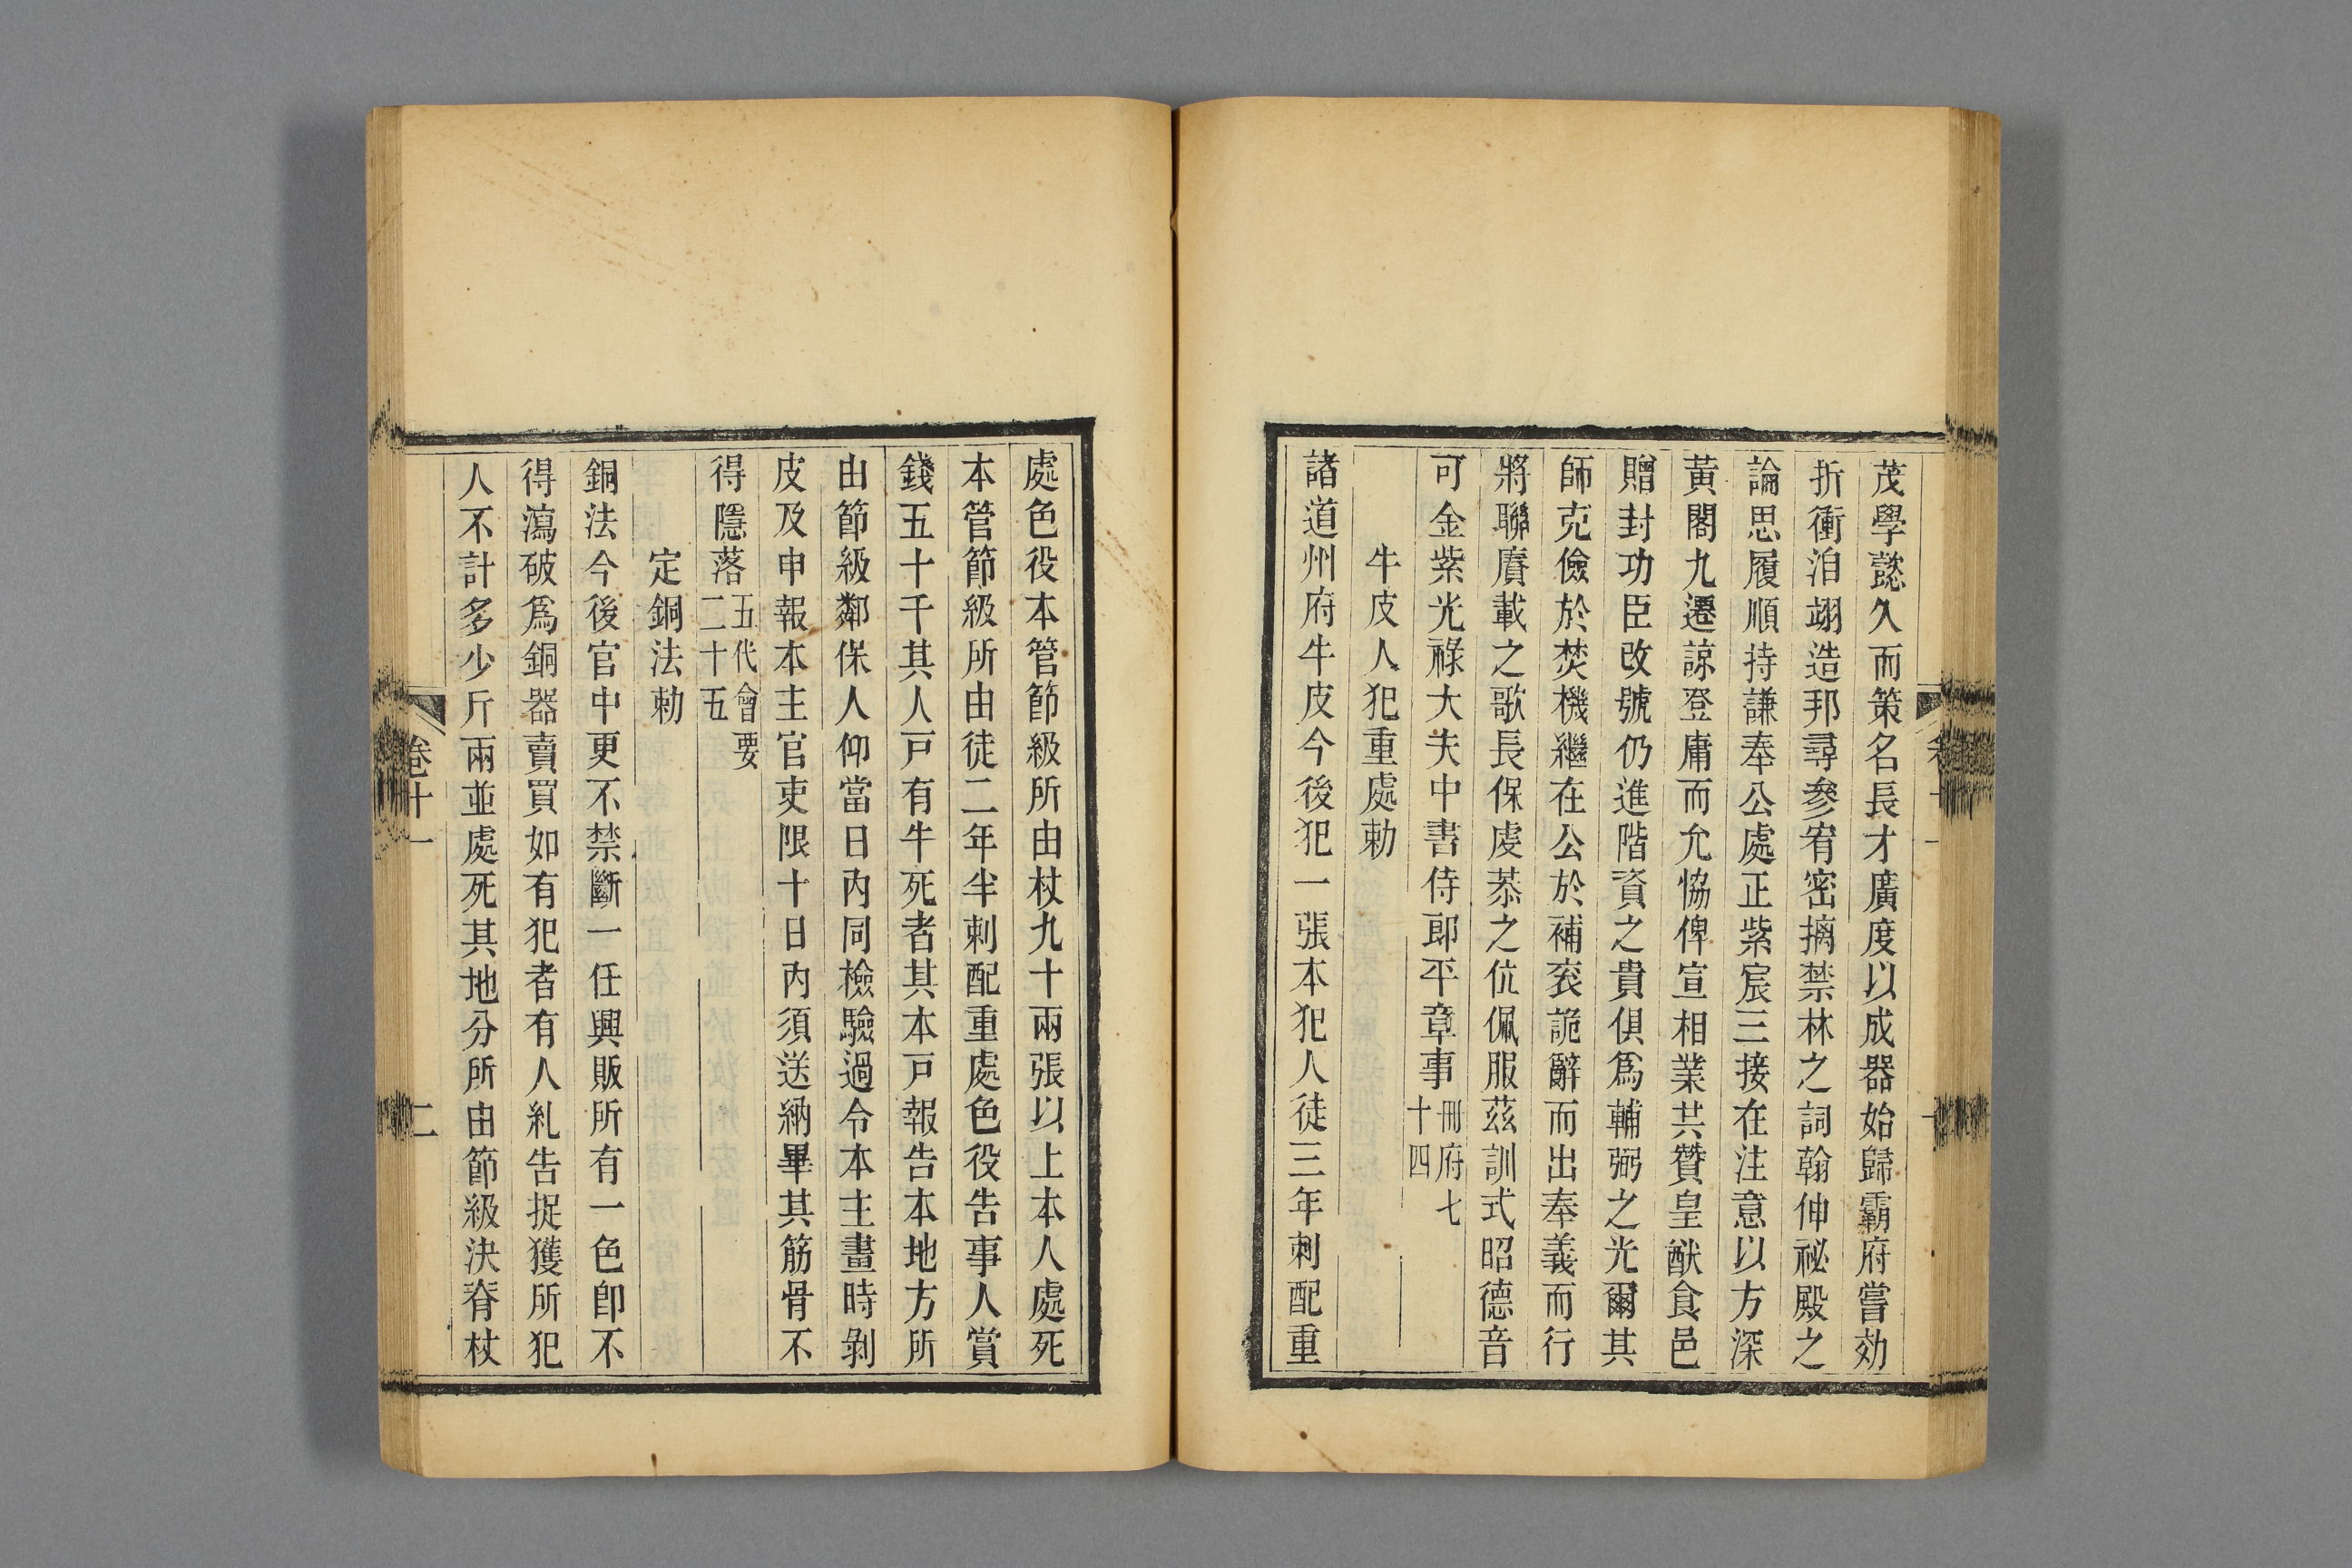 茂學懿久而策名長才廣度以成器始歸霸府嘗効
折衝洎翊造邦尋參宥密摛禁林之詞翰伸祕殿之
論思履順持謙奉公處正紫宸三接在注意以方深
黃閣九遷諒登庸而允恊俾宣相業共贊皇猷食邑
贈封功臣改號仍進階資之貴俱爲輔弼之光爾其
師克儉於焚機繼在公於補衮詭辭而出奉義而行
將聯賡載之歌長保虔恭之位佩服茲訓式昭德音
可金紫光祿大夫中書侍郎平章事冊府七
十四
牛皮人犯重處勅
諸道州府牛皮今後犯一張本犯人徒三年刺配重
處色役本管節級所由杖九十兩張以上本人處死
本管節級所由徒二年半刺配重處色役告事人賞
錢五十千其人戸有牛死者其本戸報告本地方所
由節級鄰保人仰當日內同檢驗過令本主畫時剝
皮及申報本主官吏限十日內須送納畢其筋骨不
得隱落五代會要
二十五
定銅法勅
銅法今後官中更不禁斷一任興販所有一色卽不
得瀉破爲銅器賣買如有犯者有人糺告捉獲所犯
人不計多少斤兩並處死其地分所由節級決脊杖
卷十一
二